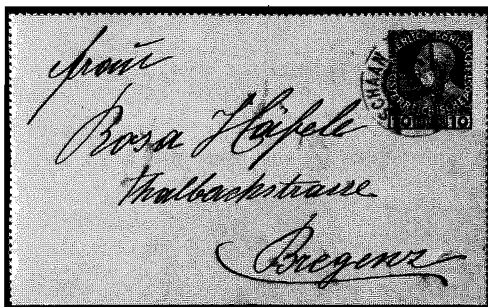 Frau
Rosa Häfele
Thalbachstrasse
Bregenz
SCHAAN
10 10